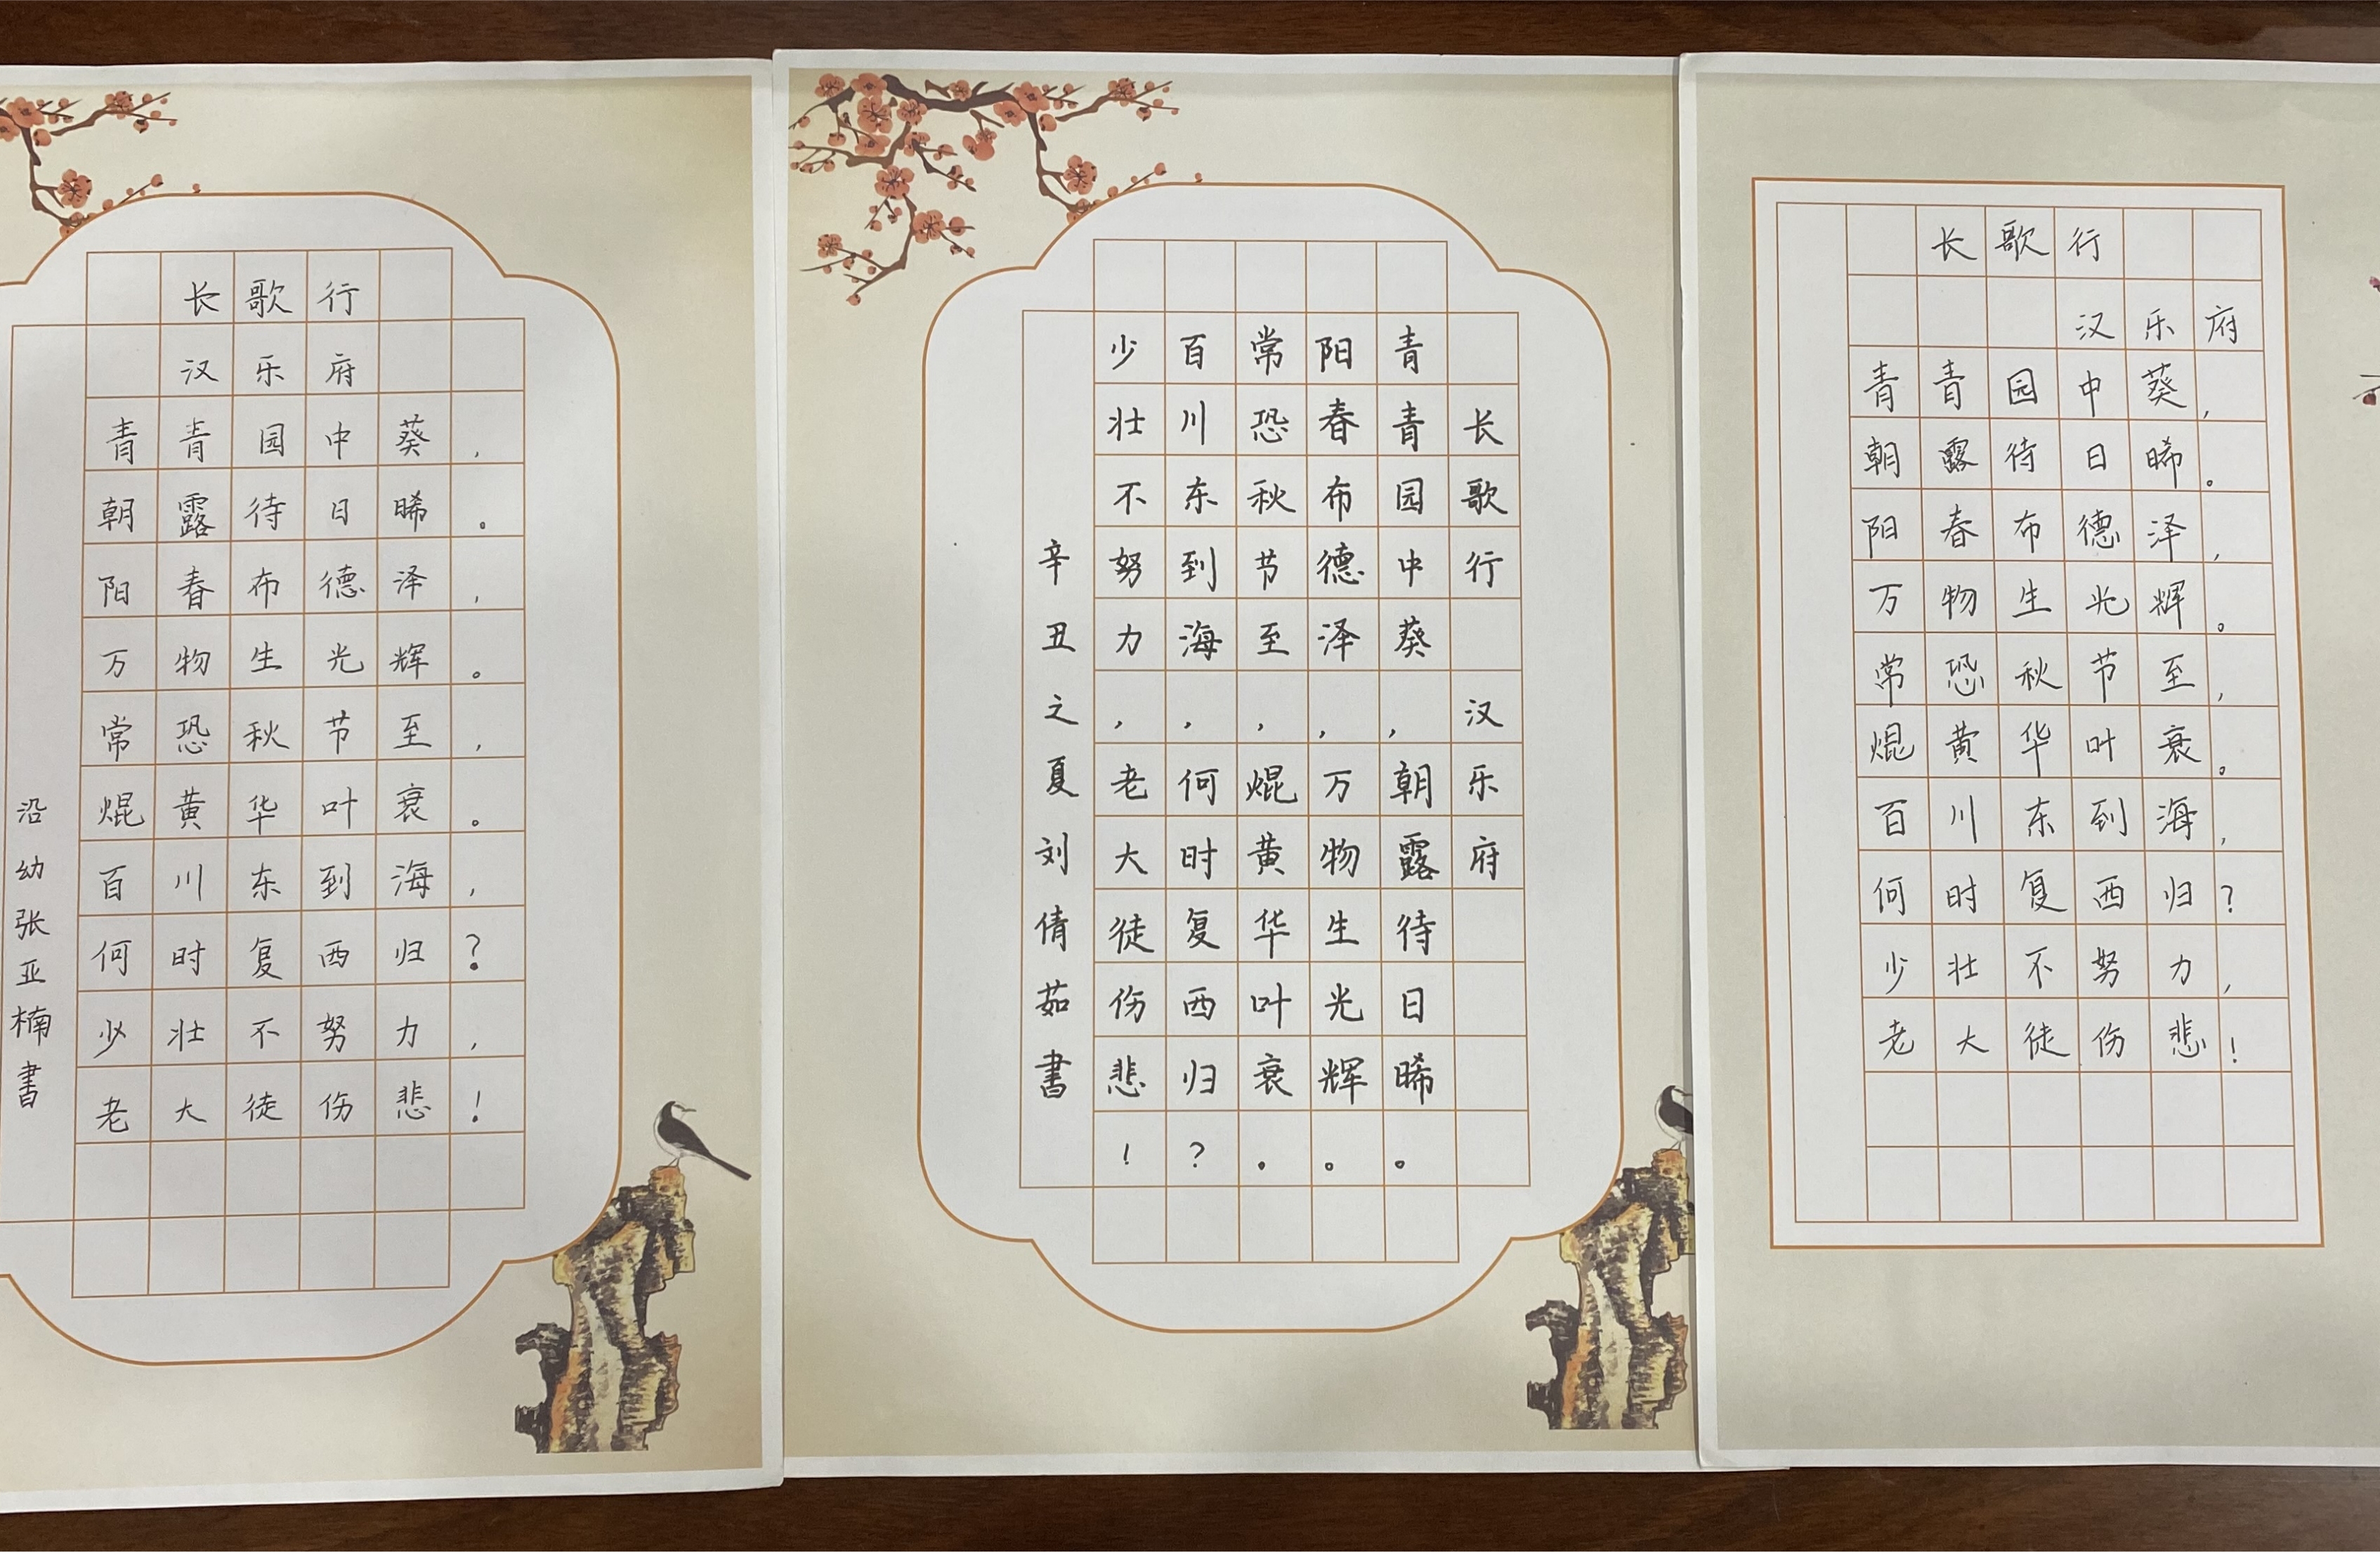 长歌行
汉乐府
青青园中葵，
朝露待日晞。
阳春布德泽，
万物生光辉。
常恐秋节至，
焜黄华叶衰。
百川东到海，
何时复西归？
少壮不努力，
老大徒伤悲！
沿幼张亚楠書
长歌行 汉乐府
青青园中葵，朝露待日晞。
阳春布德泽，万物生光辉。
常恐秋节至，焜黄华叶衰。
百川东到海，何时复西归？
少壮不努力，老大徒伤悲！
辛丑之夏刘倩茹書
长歌行
汉乐府
青青园中葵，
朝露待日晞。
阳春布德泽，
万物生光辉。
常恐秋节至，
焜黄华叶衰。
百川东到海，
何时复西归？
少壮不努力，
老大徒伤悲！